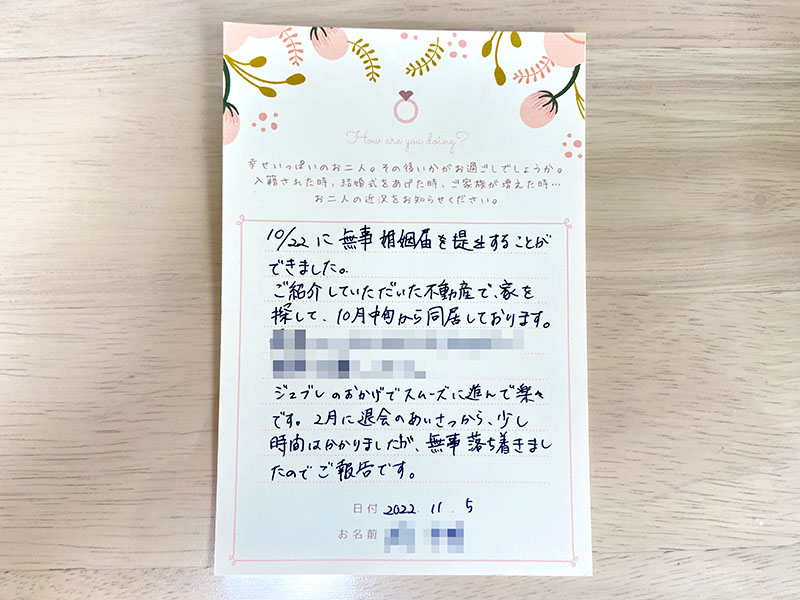 How are you doing?
幸せいっぱいのお二人。その後いかがお過ごしでしょうか。
入籍された時、結婚式をあげた時、ご家族が増えた時…
お二人の近況をお知らせください。
10/22に無事婚姻届を提出することが
できました。
ご紹介していただいた不動産で、家を
探して、10月中旬から同居しております。
ジュブレのおかげでスムーズに進んで楽々
です。2月に退会のあいさつから、少し
時間はかかりましたが、無事落ち着きまし
たのでご報告です。
日付 2022. 11. 5
お名前